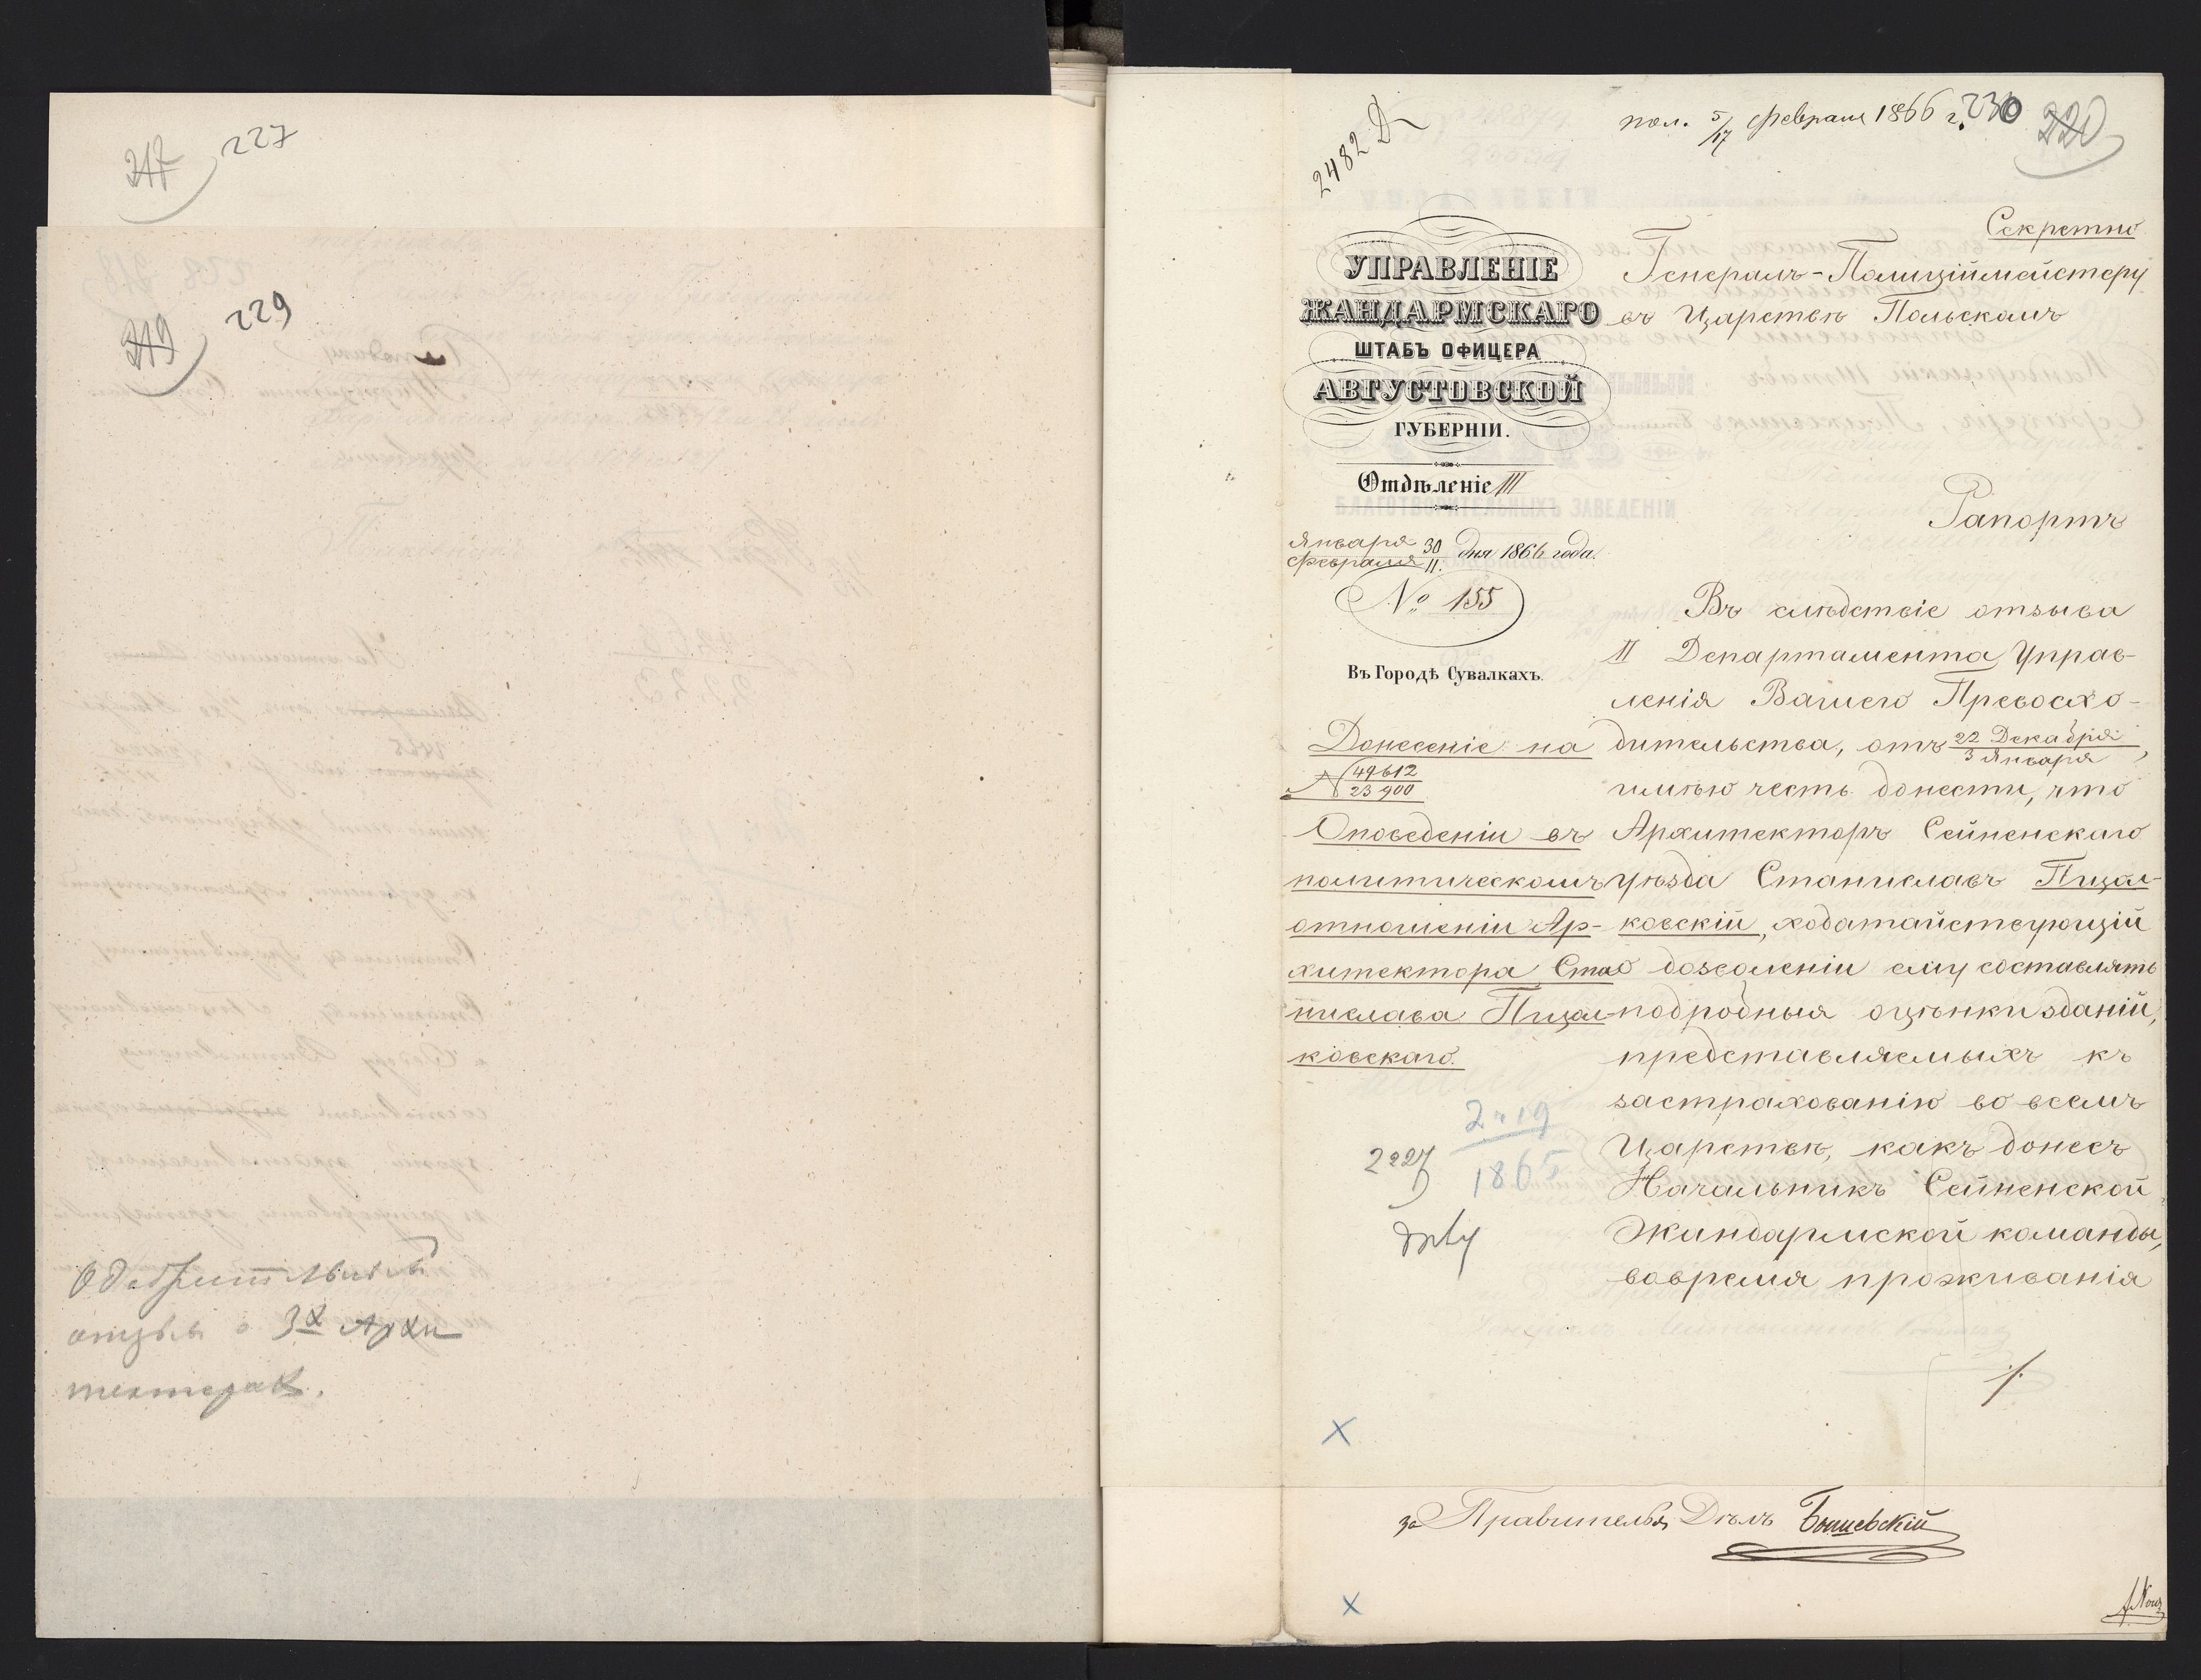 217 227
219 229
Одобрительный
отзыв о 3х Архи
текторах.
2482 Д
пол. 5/17 февраля 1866 г. 230 220
Секретно
УПРАВЛЕНІЕ
ЖАНДАРМСКАГО
ШТАБЪ ОФИЦЕРА
АВГУСТОВСКОЙ
ГУБЕРНІИ.
Отдѣленіе III
Января 30
Февраля 11. дня 1866 года.
№ 155
Въ Городѣ Сувалкахъ.
Донесеніе на
№ 49612
23900
О поведеніи въ
политическомъ
отношеніи Ар-
хитектора Ста
нислава Пицал-
ковскаго.
2 19
1865
2227
Генералъ-Полиціймейстеру
въ Царствѣ Польскомъ
Рапортъ
Въ слѣдствіе отзыва
II Департамента Управ-
ленія Вашего Превосхо-
дительства, отъ 22 Декабря
3 Января,
имѣю честь донести, что
Архитекторъ Сейненскаго
уѣзда Станиславъ Пицал-
ковскій, ходатайствующій
о дозволеніи ему составлять
подробныя оцѣнки зданій,
представляемыхъ къ
застрахованію во всемъ
Царствѣ, какъ донесъ
Начальникъ Сейненской
Жандармской команды,
вовремя проживанія
./.
х
за Правителя Дѣлъ
х